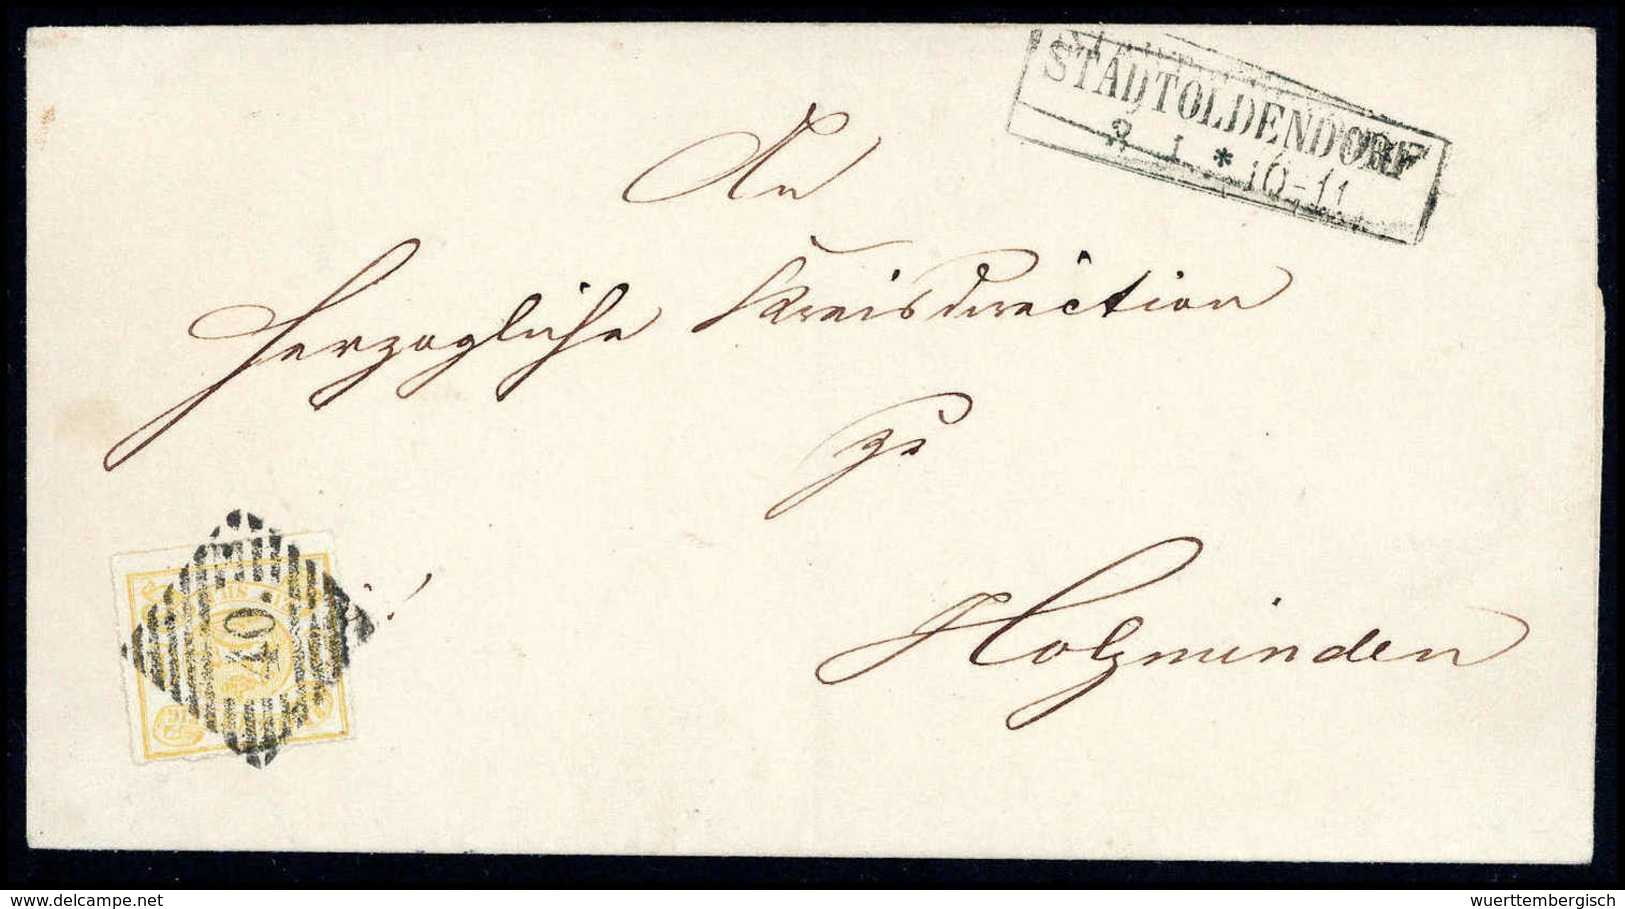 STADTOLDENDORF
2 1 * 10-11
An
Herzogliche Kreisdirection
zu
Holzminden
40.
delcampe.net
wuerttembergisch